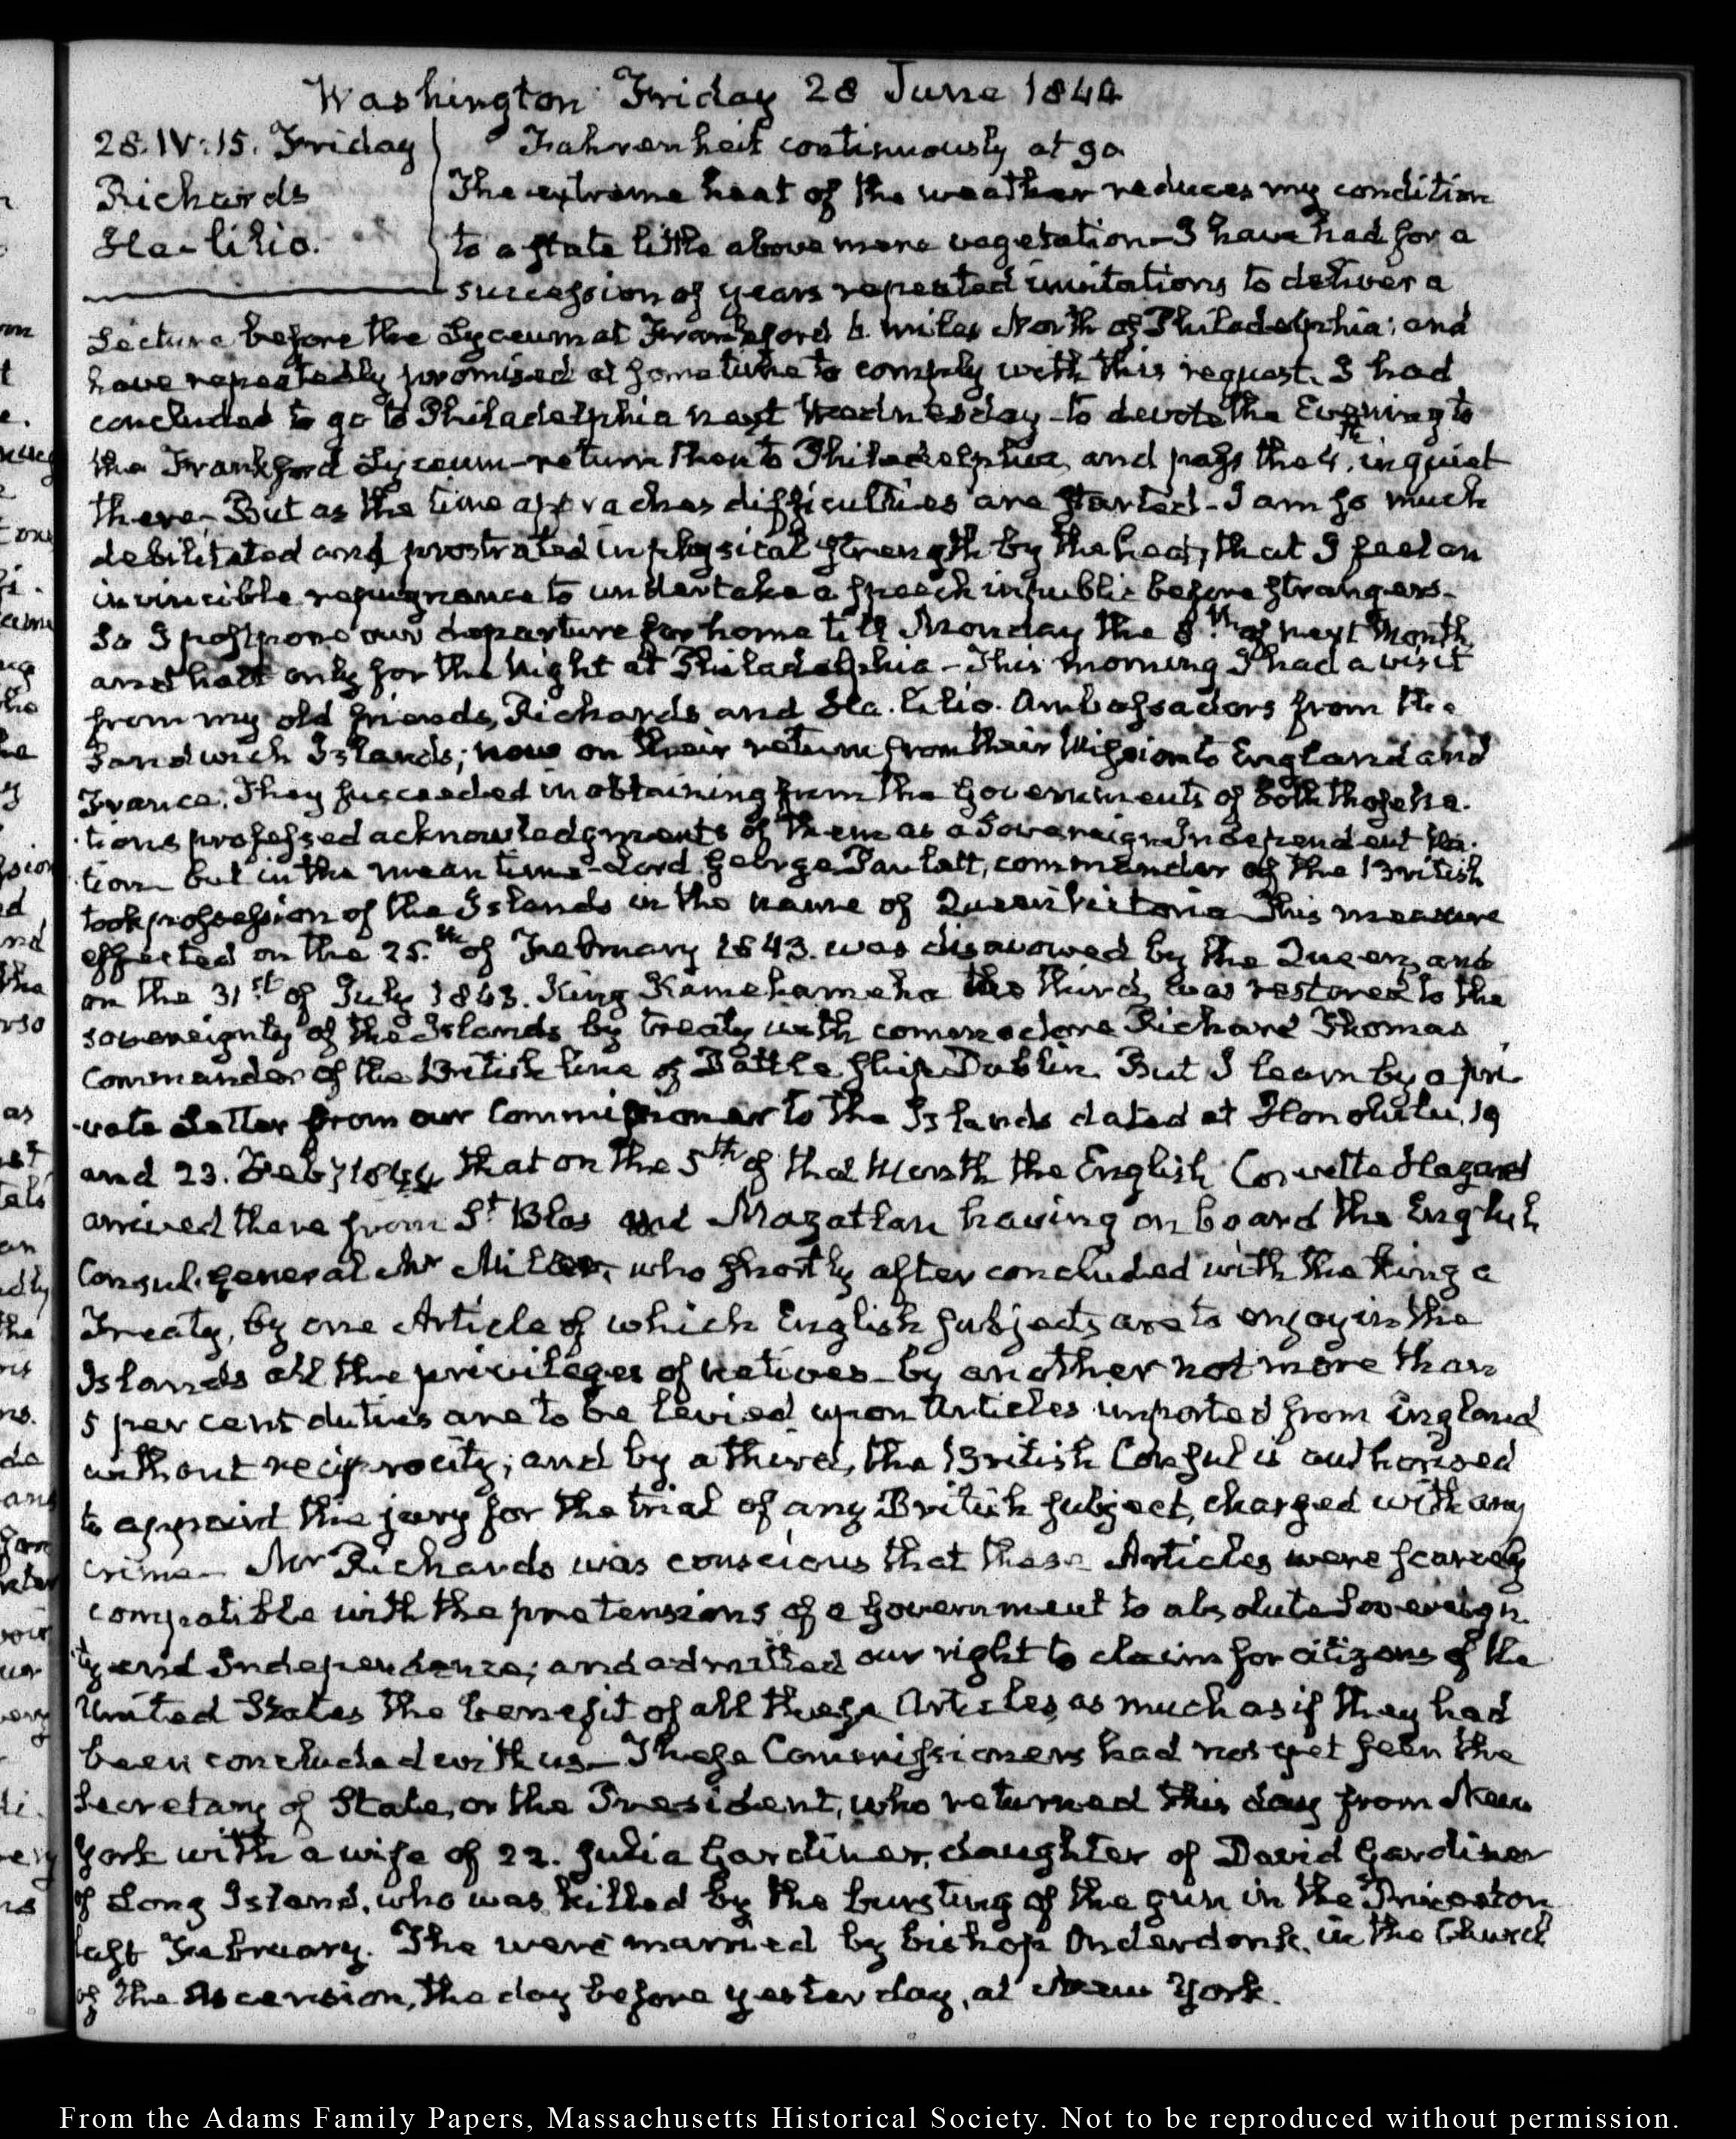 Washington Friday 28 June 1844
28. IV:15. Friday
Richards
Ha-lilio.
Fahrenheit continuously at 90
The extreme heat of the weather reduces my condition
to a state little above mere vegetation – I have had for a
succession of years repeated invitations to deliver a
Lecture before the Lyceum at Frankford 6. miles North of Philadelphia; and
have repeatedly promised at some time to comply with this request. I had
concluded to go to Philadelphia next Wednesday – to devote the Evening to
the Frankford Lyceum – return then to Philadelphia and pass the 4.th in quiet
there. But as the time approaches difficulties are started – I am so much
debilitated and prostrated in physical strength by the heat, that I feel an
invincible repugnance to undertake a speech in public before strangers –
So I postpone our departure for home till Monday the 8.th of next Month,
and halt only for the Night at Philadelphia – This morning I had a visit
from my old friends, Richards and Ha.lilio. Ambassadors from the
Sandwich Islands; now on their return from their Mission to England and
France. They succeeded in obtaining from the Governments of both those na-
tions professed acknowledgments of them as a Sovereign Independent Na-
tion – but in the mean time – Lord George Paulett, commander of the British
took possession of the Islands in the name of Queen Victoria – This measure
effected on the 25.th of February 1843. was disavowed by the Queen, and
on the 31st of July 1843. King Kamehameha the third, was restored to the
sovereignty of the Islands by treaty with commodore Richard Thomas,
commander of the British line of Battle ship Dublin. But I learn by a pri-
vate Letter from our Commissioner to the Islands dated at Honolulu, 19
and 23. Feby 1844 that on the 5th of that Month the English Corvette Hazard
arrived there from St Blas and Mazatlan having on board the English
Consul general Mr Miller, who shortly after concluded with the King a
Treaty, by one Article of which English subjects are to enjoy in the
Islands all the privileges of natives – by another not more than
5 per cent duties are to be levied upon Articles imported from England
without reciprocity; and by a third, the British Consul is authorised
to appoint the jury for the trial of any British subject, charged with any
crime – Mr Richards was conscious that these Articles were scarcely
compatible with the pretensions of a government to absolute Sovereign-
ty and Independence; and admitted our right to claim for citizens of the
United States the benefit of all these Articles, as much as if they had
been concluded with us – These Commissioners had not yet seen the
Secretary of State, or the President, who returned this day from New
York with a wife of 22. Julia Gardiner, daughter of David Gardiner
of Long Island, who was killed by the bursting of the gun in the Princeton
last February. The were married by bishop Onderdonk, in the Church
of the Ascension, the day before yesterday, at New York.
From the Adams Family Papers, Massachusetts Historical Society. Not to be reproduced without permission.